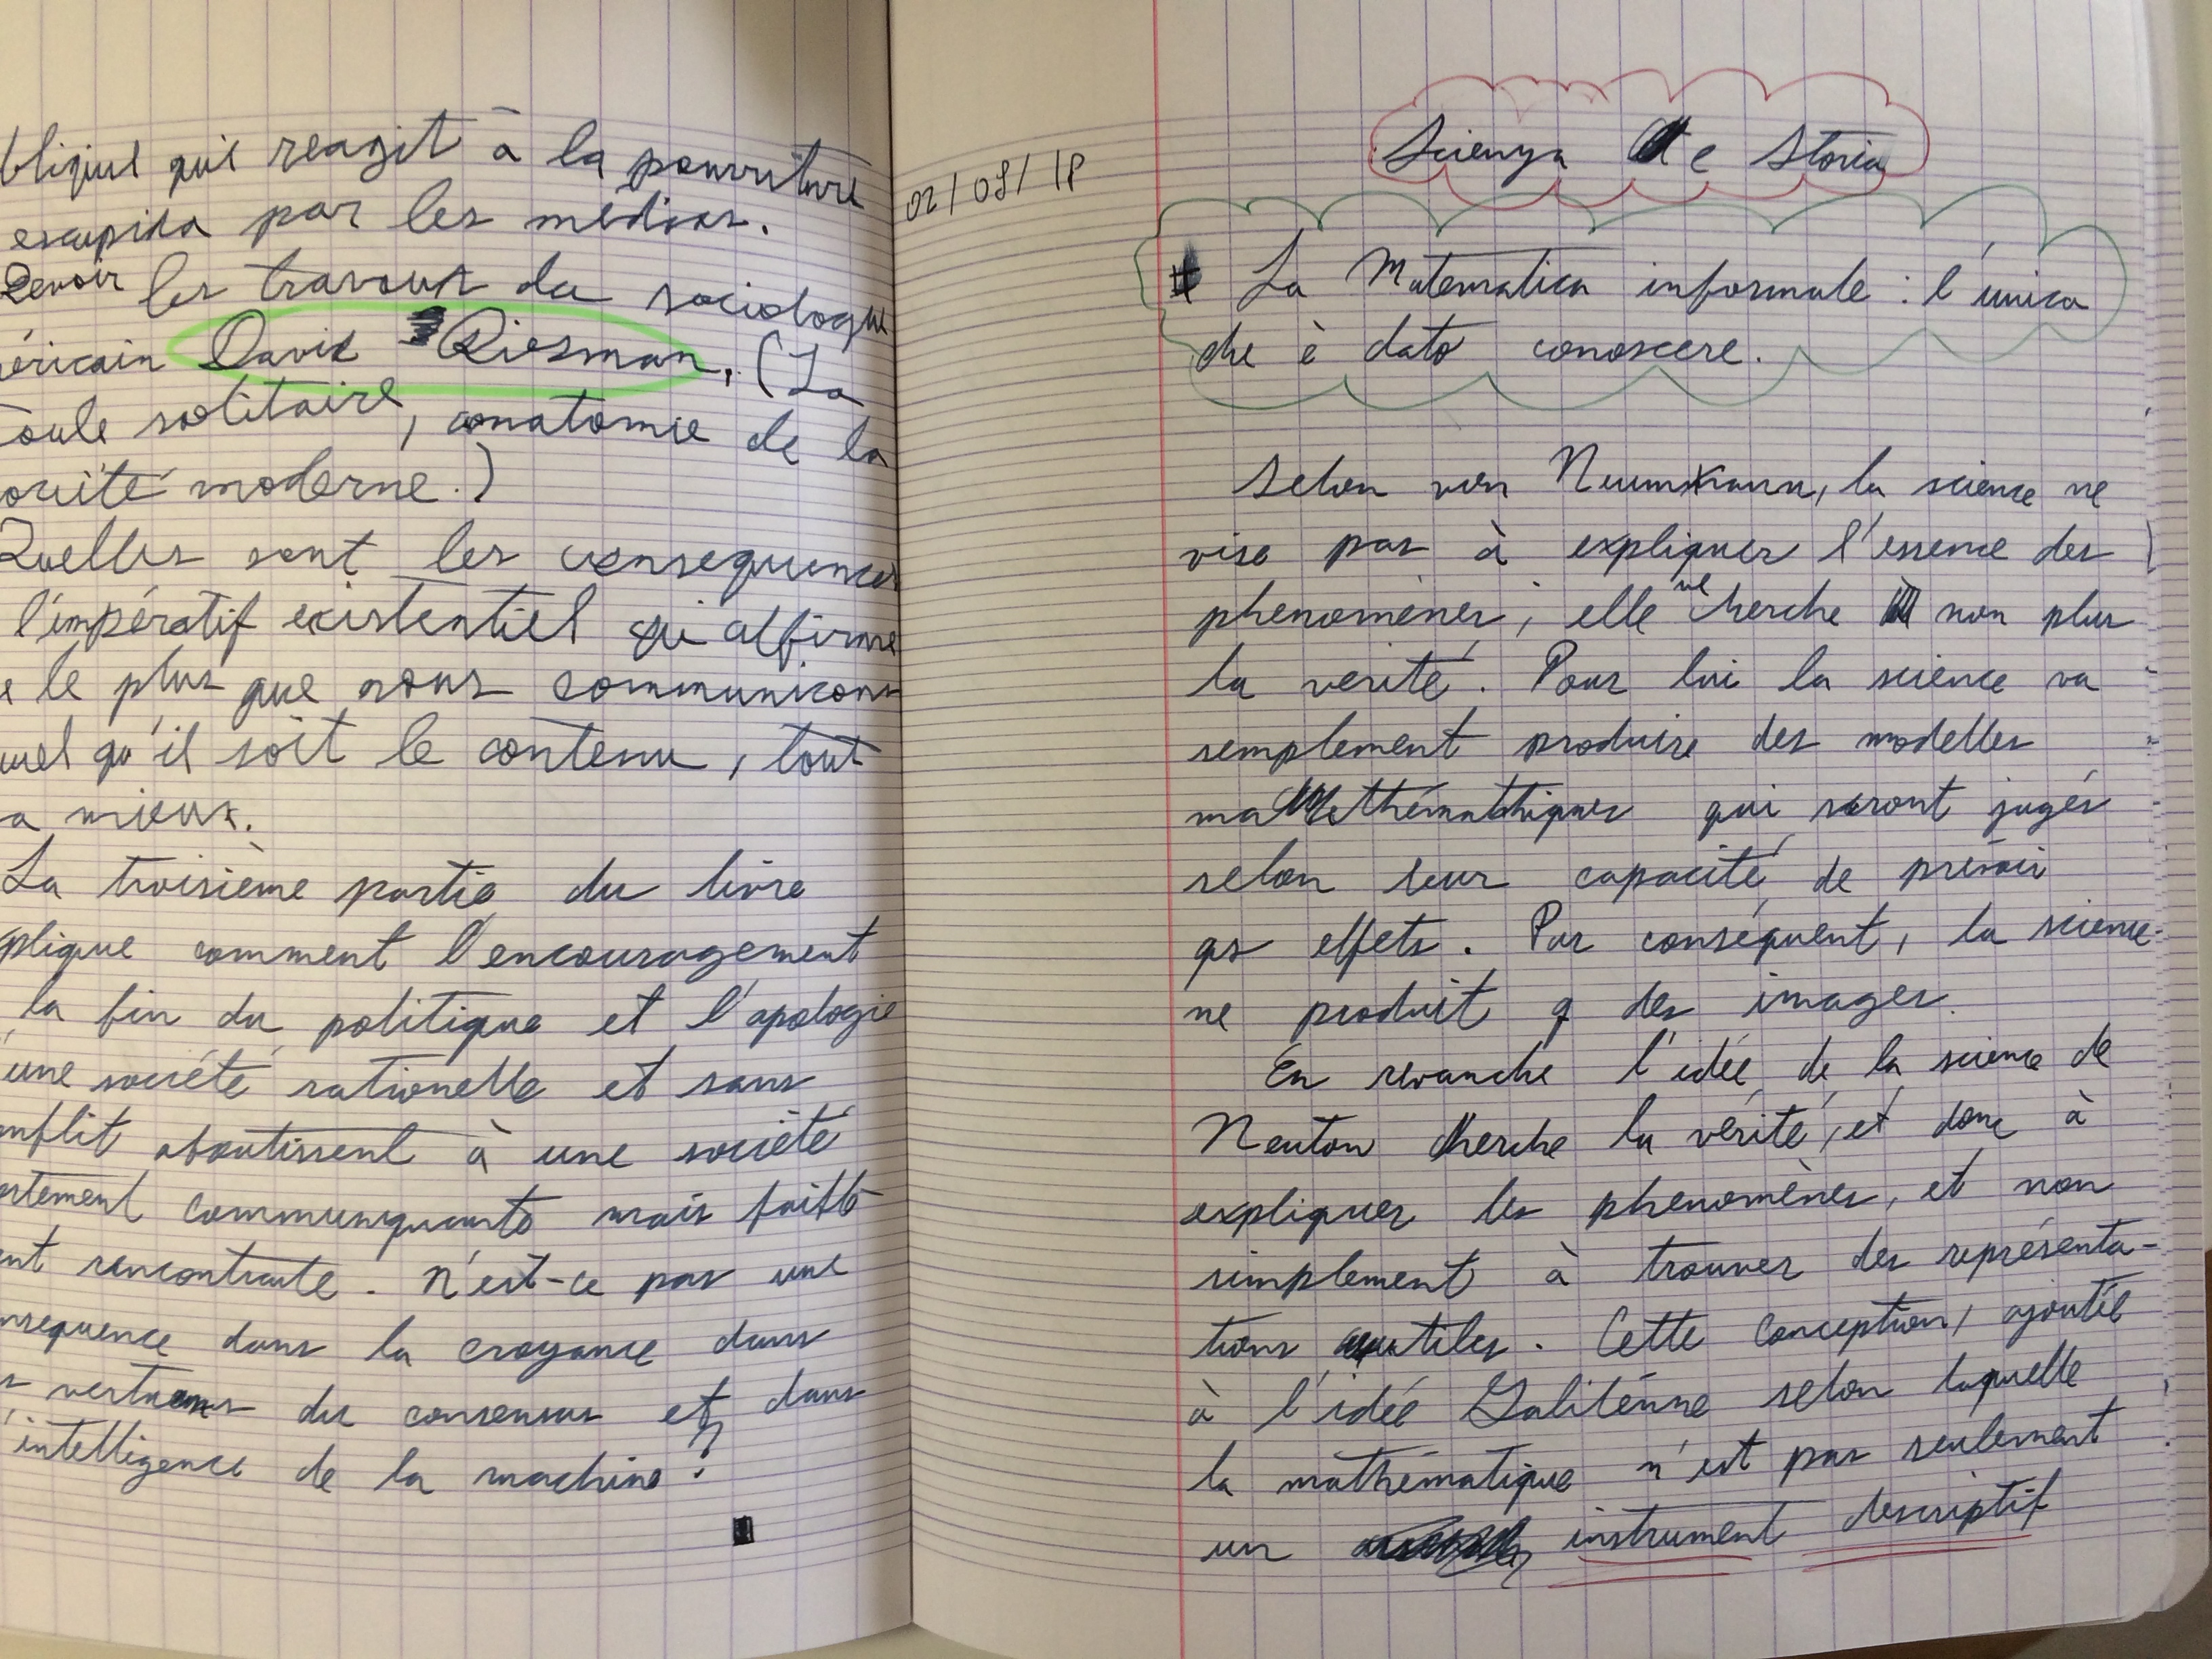 blique qui reagit à la pourriture
escupida par les médias.
Revoir les travaux du sociologue
éricain David Riesman, (La
oule solitaire, anatomie de la
ociété moderne.)
Quelles sont les consequences
l'impératif existentiel qui affirme
e le plus que nous communicons
uel qu'il soit le contenu, tout
a mieux.
La troisième partie du livre
plique comment l'encouragement
la fin du politique et l'apologie
'une société rationelle et sans
onflit aboutissent à une société
ortement communiquante mais faible
ent rencontrante. N'est-ce pas une
nsequence dans la croyance dans
s vertus du consensus et dans
'intelligence de la machine?
02/09/18
Scienza e Storia
# La Matematica informale : l'unica
che è dato conoscere.
Selon von Neumann, la science ne
vise pas à expliquer l'essence des
phenomènes ; elle ne cherche non plus
la verité. Pour lui la science va
semplement produire des modelles
mathématiques qui seront jugés
selon leur capacité de prévoir
qs effets. Par conséquent, la science
ne produit q des images.
En revanche l'idée de la science de
Neuton cherche la vérité, et donc à
expliquer les phenomènes, et non
simplement à trouver des représenta-
tions utiles. Cette conception, ajoutée
à l'idée Galiléenne selon laquelle
la mathématique n'est pas seulement
un instrument descriptif